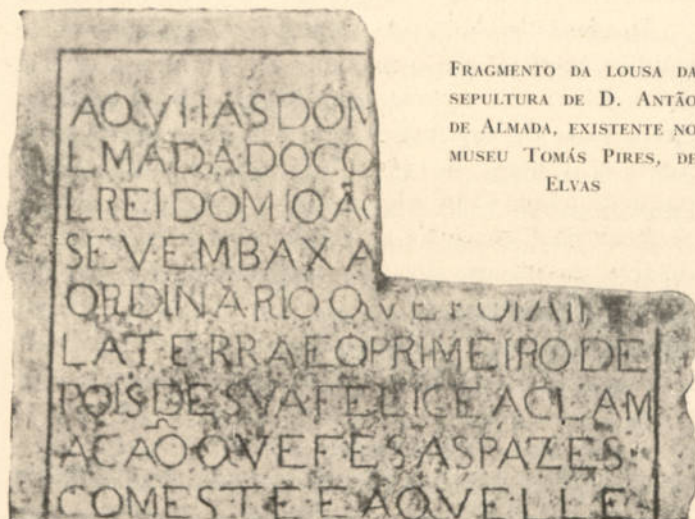 FRAGMENTO DA LOUSA DA
SEPULTURA DE D. ANTÃO
DE ALMADA, EXISTENTE NO
MUSEU TOMÁS PIRES, DE
ELVAS
AQVIIASDOM
LMADADOCO
LREIDOMIOÃO
SEVEMBAXA
ORDINARIOQVE
LATERRAEOPRIMEIRODE
POISDESVAFELICEACLAM
ACAÕQVEFESASPAZES
COMESTEEAQVELLE